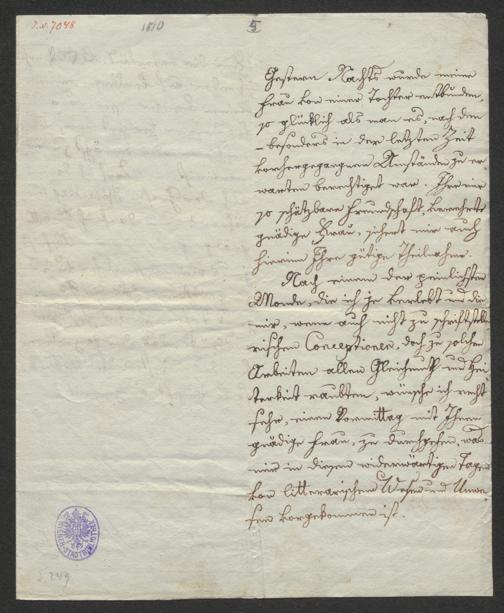 I.N. 7048
1810
5
Gestern Nachts wurde meine
Frau von einer Tochter entbunden,
so glücklich als man es, nach den
– besonders in der letzten Zeit
vorhergegangenen Umständen zu er
warten berechtiget war. Ihre mir
so schätzbare Freundschaft, verehrte
gnädige Frau, sichert mir auch
hierinn Ihre gütige Theilnahme.
Nach einem der peinlichsten
Monde, die ich je verlebt und die
mir, wenn auch nicht zu schriftstelle
rischen Conceptionen, doch zu solchen
Arbeiten allen Gleichmuth und Hei
terkeit raubten, wünsche ich recht
sehr, einen Vormittag mit Ihnen
gnädige Frau, zu durchgehen, was
mir in diesen widerwärtigen Tagen
von litterarischem Wesen und Unwe
sen vorgekommen ist.